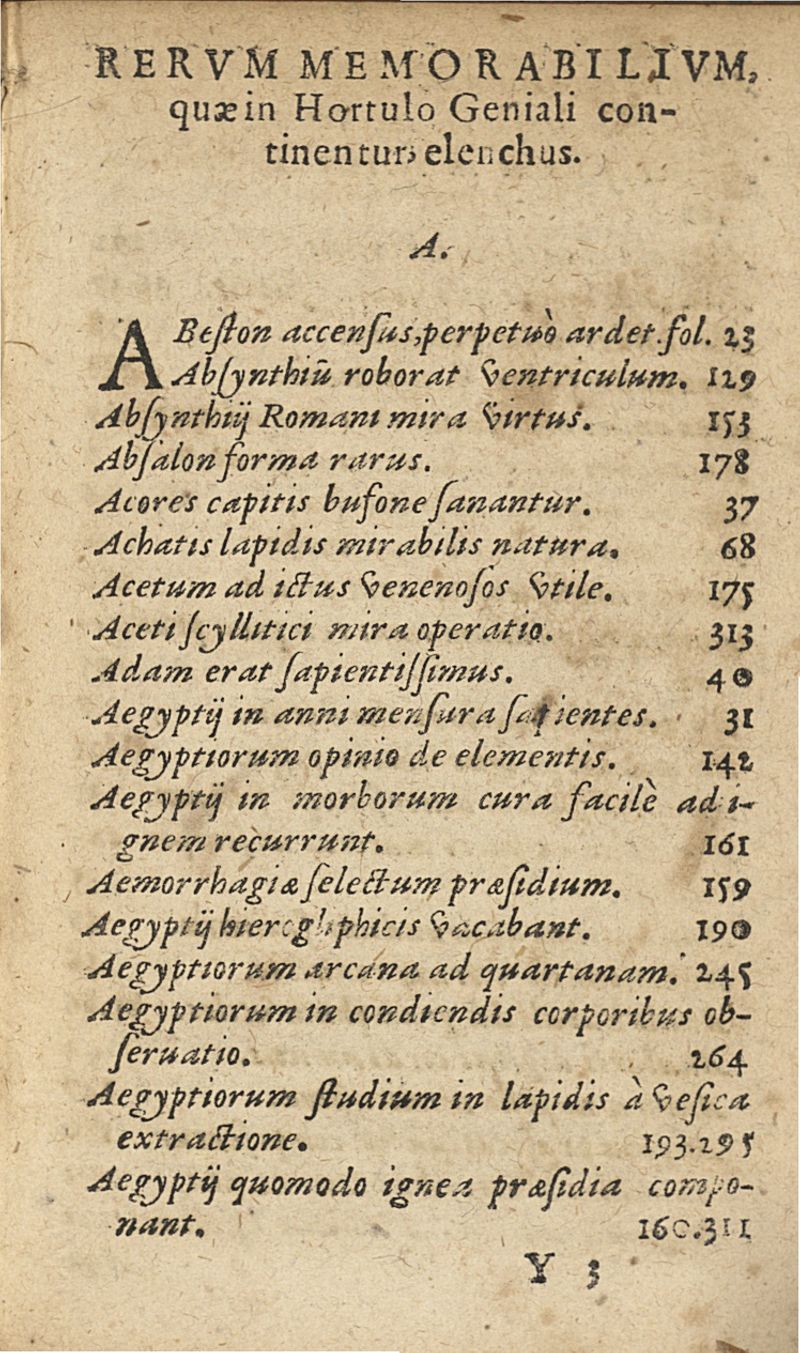 RERVM MEMORABILIVM,
quæ in Hortulo Geniali con-
tinentur, elenchus.
A.
ABeſton accenſus, perpetuò ardet. fol. 23
Abſynthiū roborat ventriculum. 129
Abſynthij Romani mira virtus. 153
Abſalon forma rarus. 178
Acores capitis bufone ſanantur. 37
Achatis lapidis mirabilis natura. 68
Acetum ad ictus venenoſos vtile. 175
Aceti ſcyllitici mira operatio. 313
Adam erat ſapientiſſimus. 40
Aegyptij in anni menſura ſapientes. 31
Aegyptiorum opinio de elementis. 142
Aegyptij in morborum cura facilè ad i-
gnem recurrunt. 161
Aemorrhagiæ ſelectum præſidium. 159
Aegyptij hierogliphicis vacabant. 190
Aegyptiorum arcana ad quartanam. 245
Aegyptiorum in condiendis corporibus ob-
ſeruatio. 264
Aegyptiorum ſtudium in lapidis à veſica
extractione. 193.295
Aegyptij quomodo ignea præſidia compo-
nant. 160.311
Y 3